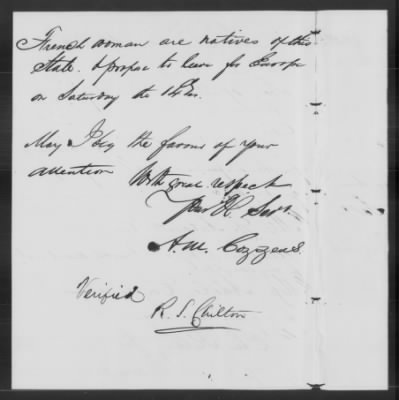 French woman are natives of this
State. & propose to leave for Europe
on Saturday the inst.
May I beg the favour of your
attention With great respect
Your Ob Servt
A. M. Cozzens.
Verified
R. S. Chilton